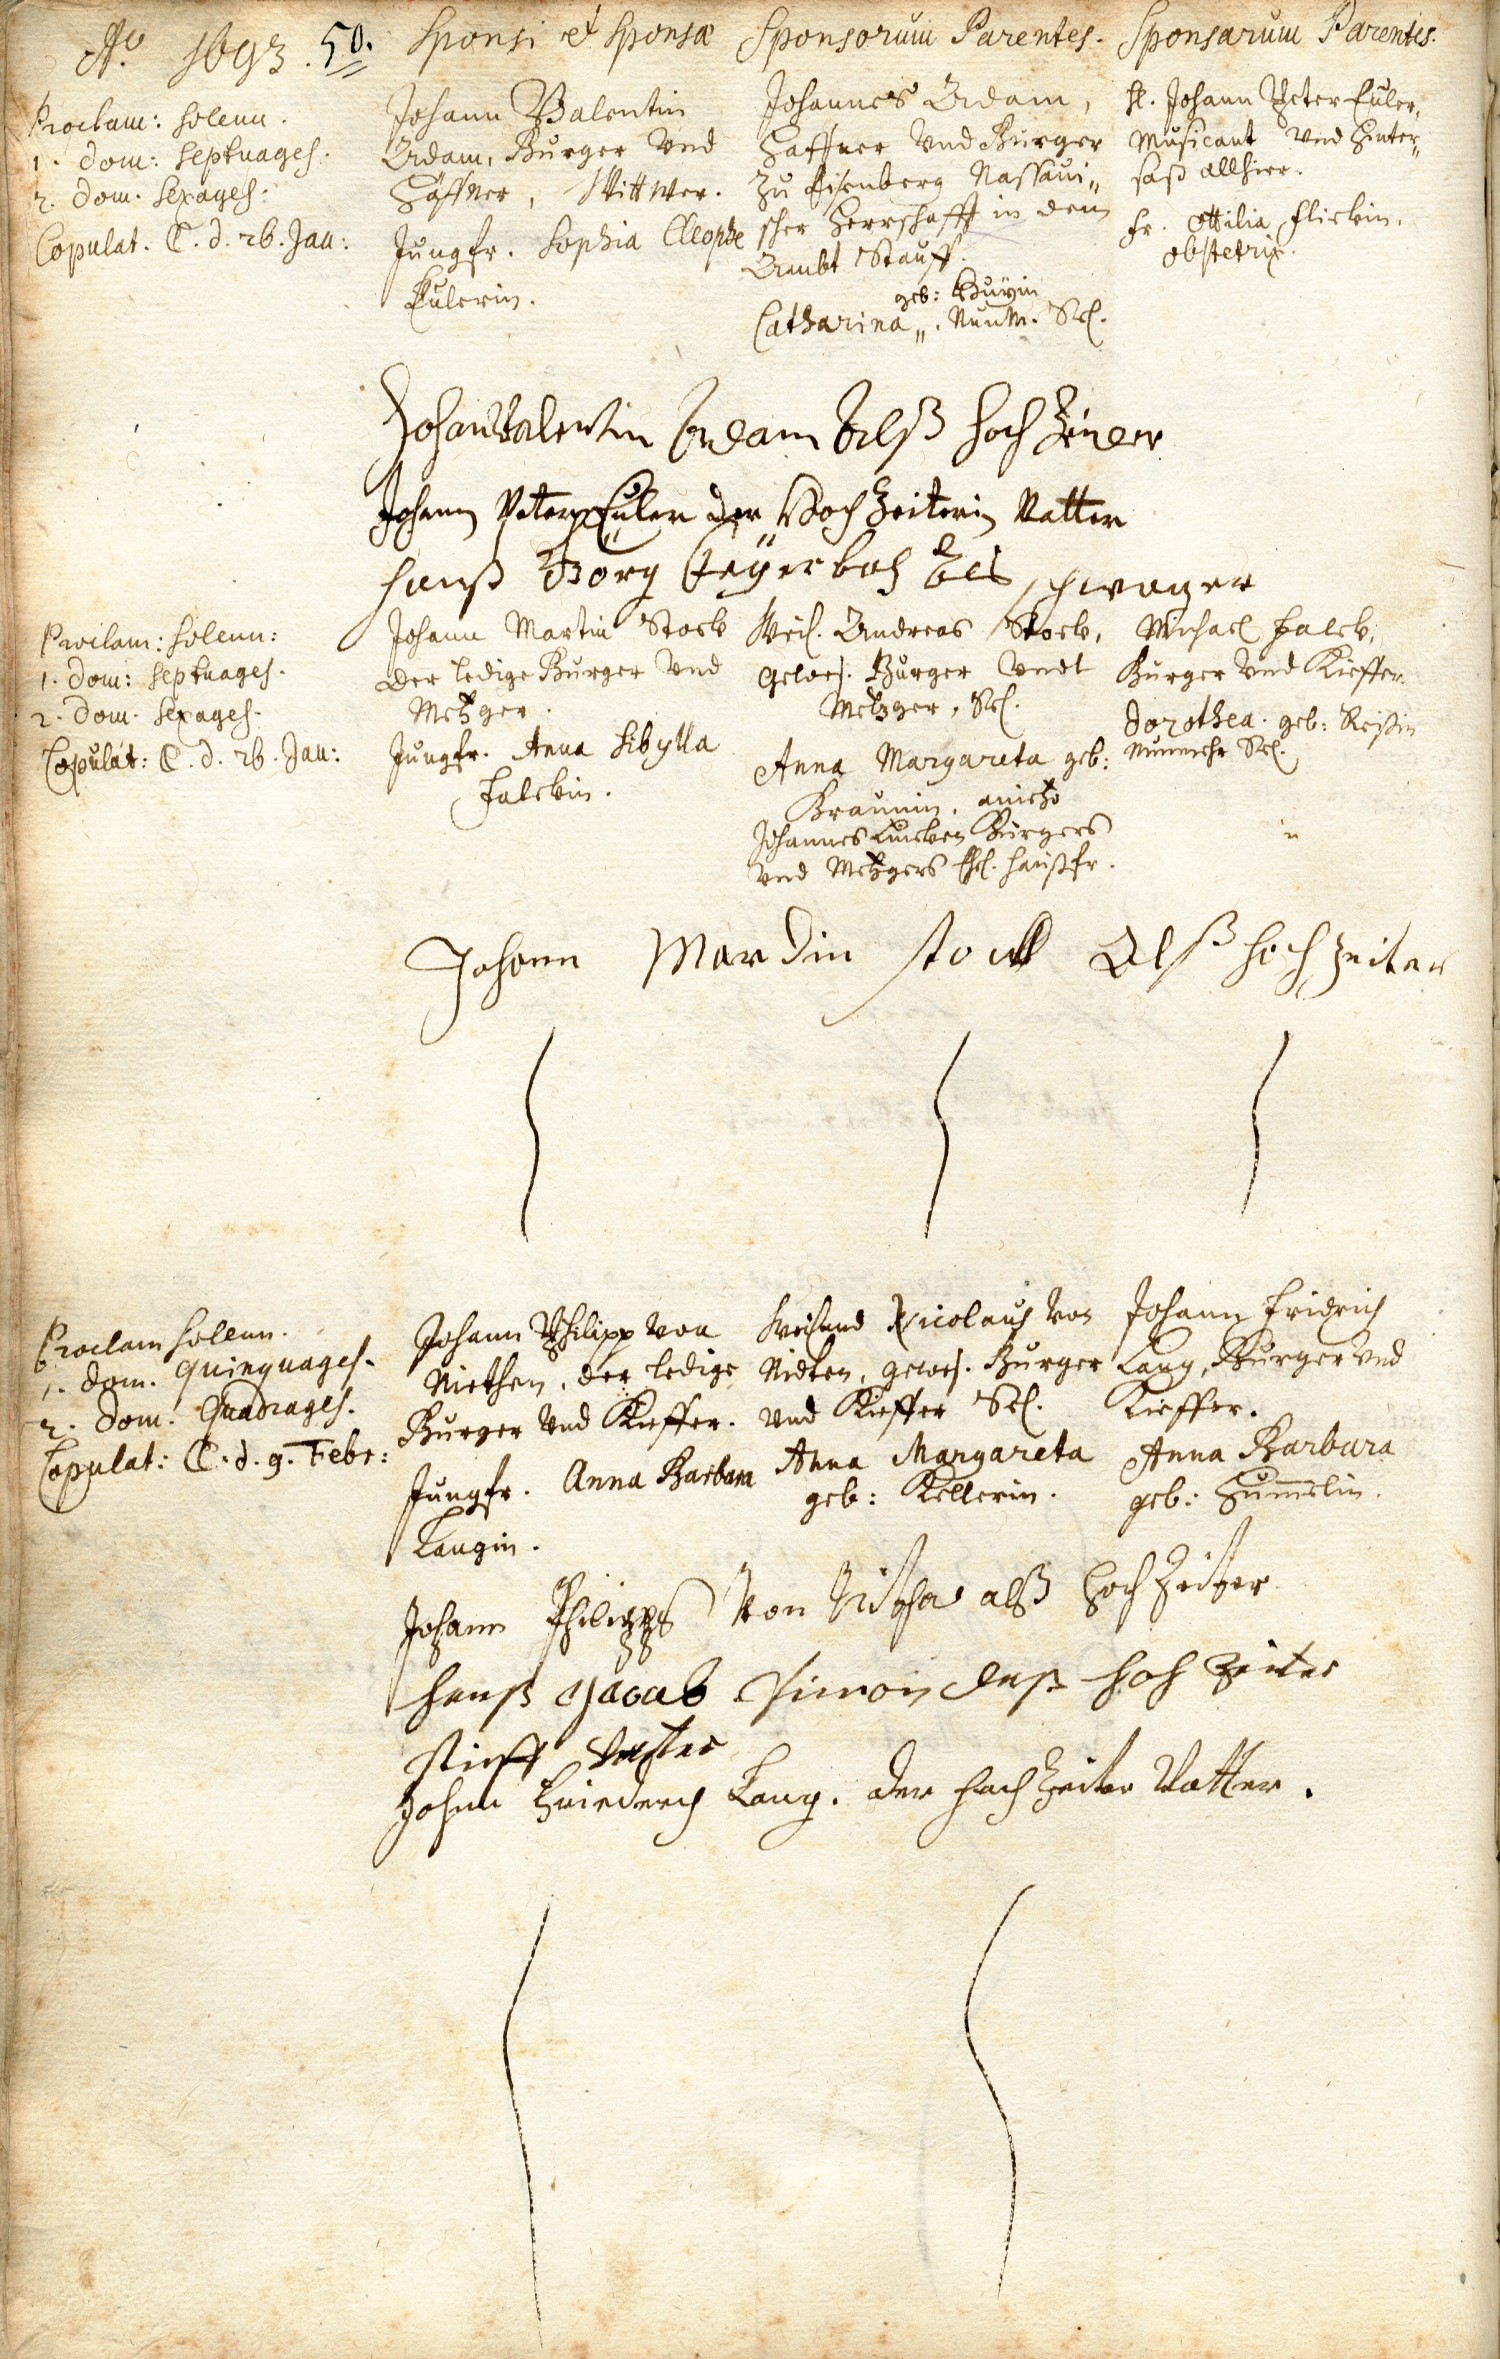 Aº 1693. 50. Sponsi et Sponsæ Sponsorum Parentes. Sponsarum Parentes.
Proclam: solenn.
1. Dom: Septuages.
2. Dom. Sexages:
Copulat. C. d. 26. Jan:
Johann Valentin
Adam, Burger Vnd
Häffner, Wittwer.
Jungfr. Sophia Cleophe
Eulerin.
Johannes Adam,
Haffner Vnd Burger
zu Eisenberg Nassaui„
scher Herrschafft in dem
Ambt Stauff.
geb:
Catharina „. Nunm. Sel.
H. Johann Peter Euler,
Musicant Vnd Hinter„
saß allhier.
Fr. Ottilia, Flickin,
obstetrix.
Johan Valentin Adam Alß hoch Zeider
Johann Peter Euler der Hoch Zeiterin Vatter
hanß Jörg Geÿerbach Als schwager
Proclam: solenn:
1. Dom: Septuages.
2. Dom. Sexages.
Copulat: C. d. 26. Jan:
Johann Martin Stock
der ledige Burger Vnd
Metzger.
Jungfr. Anna Sibylla
Falckin.
Weil. Andreas Stock,
gewes. Burger Vndt
Metzger, Sel.
Anna Margareta geb:
Braunin, anietzo
Johannes Burgers
Vnd Metzgers Ehl. Haußfr.
Michael Falck,
Burger Vnd Kieffer.
Dorothea. geb: Reißin
Nunmehr Sel.
Johann Mardin stock Alß hoch zeiter
Proclam solenn.
1. Dom. Quinquages.
2. Dom. Quadrages.
Copulat: C. d. 9. Febr:
Johann Philipp von
Niethen, der ledige
Burger Vnd Kieffer.
Jungfr. Anna Barbara
Langin.
Weiland Nicolaus Von
Nidten, gewes. Burger
Vnd Kieffer Sel.
Anna Margareta
geb: Kellerin.
Johann Fridrich
Lang, Burger Vnd
Kieffer.
Anna Barbara
geb: Hummelin.
Johann Philipps Von alß Hoch Zeiter
hanß Jacob Simon deß hoh Zeiter
stieff Vatter
Johan Friederich Lang. der hoch Zeiter Vatter.